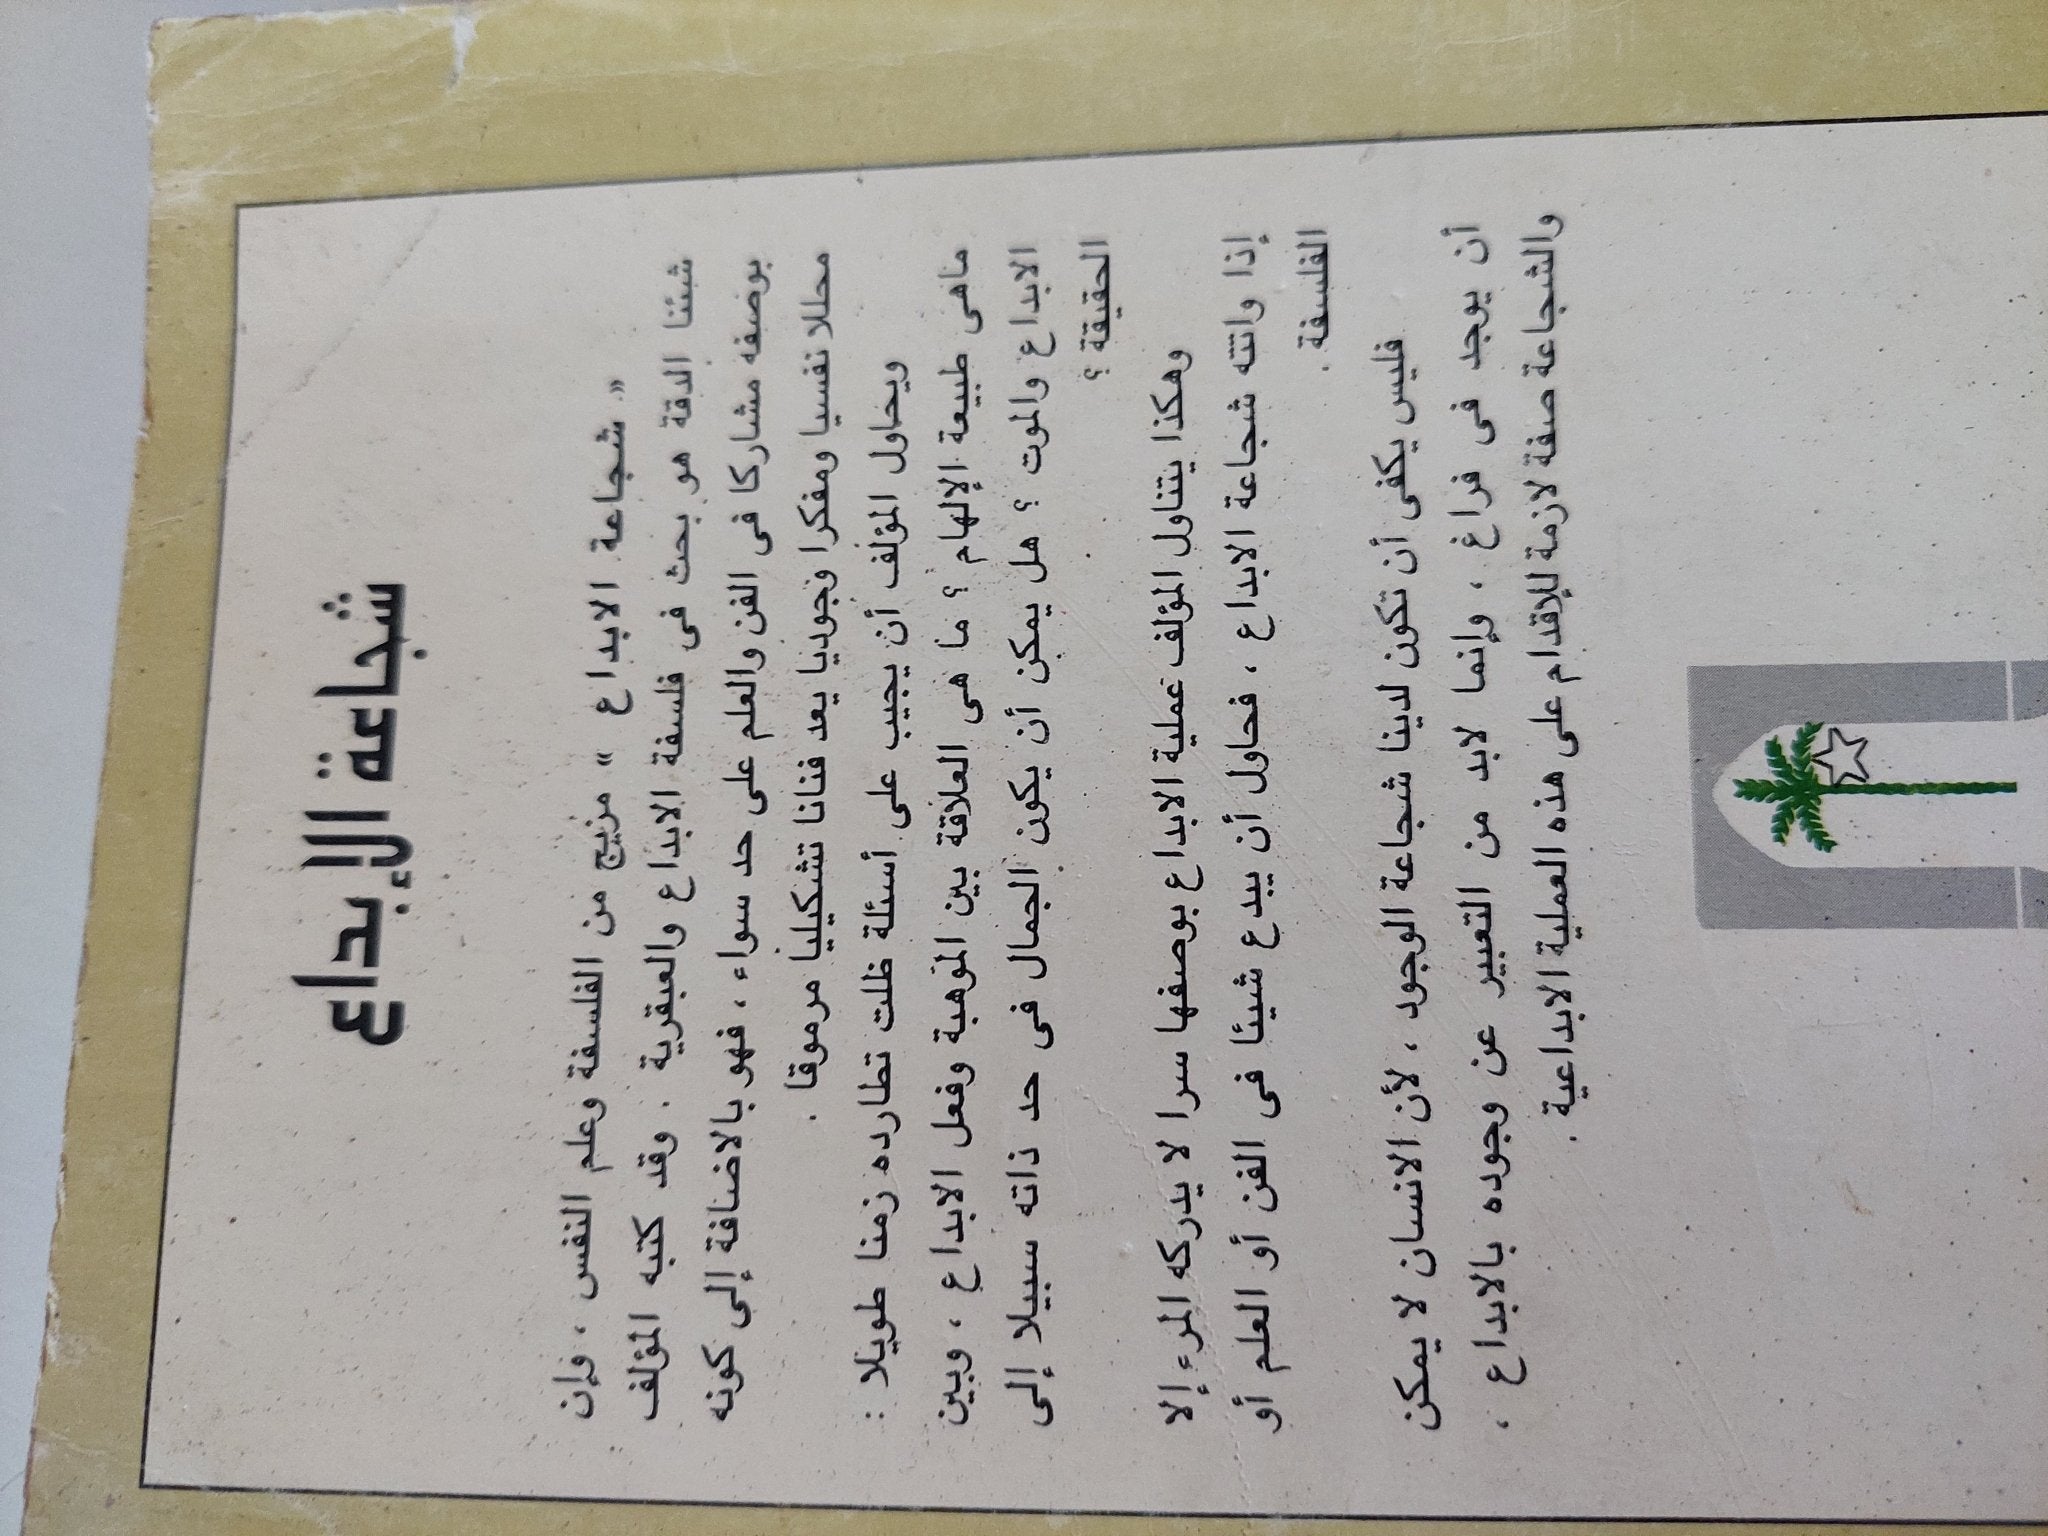 شجاعة الإبداع
« شجاعة الابداع » مزيج من الفلسفة وعلم النفس ، وإن
شئنا الدقة هو بحث فى فلسفة الابداع والعبقرية . وقد كتبه المؤلف
بوصفه مشاركا فى الفن والعلم على حد سواء ، فهو بالاضافة إلى كونه
محللا نفسيا ومفكرا وجوديا يعد فنانا تشكيليا مرموقا .
ويحاول المؤلف أن يجيب على أسئلة ظلت تطارده زمنا طويلا :
ماهى طبيعة الإلهام ؟ ما هى العلاقة بين الموهبة وفعل الابداع ، وبين
الابداع والموت ؟ هل يمكن أن يكون الجمال فى حد ذاته سبيلا إلى
الحقيقة ؟
وهكذا يتناول المؤلف عملية الابداع بوصفها سرا لا يدركه المرء إلا
إذا واتته شجاعة الابداع ، فحاول أن يبدع شيئا فى الفن أو العلم أو
الفلسفة .
فليس يكفى أن تكون لدينا شجاعة الوجود ، لأن الانسان لا يمكن
أن يوجد فى فراغ ، وإنما لابد من التعبير عن وجوده بالابداع ،
والشجاعة صفة لازمة للإقدام على هذه العملية الابداعية .